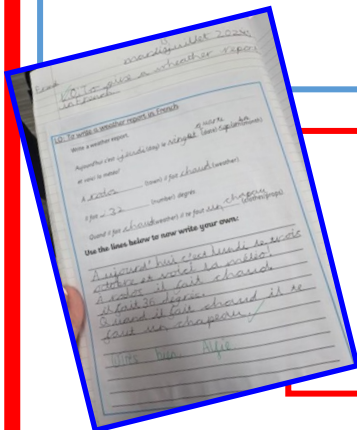 Read
mardi 9 juillet 2024
LO: To write a weather report
in French
LO: To write a weather report in French
Write a weather report.
Aujourd'hui c'est jeudi (day) le vingt (date) (months)
et voici la météo!
A rodor (town) il fait chaud (weather)
Il fait 32 (number) degrés
Quand il fait chaud (weather) il te faut un chapeau (clothes/props)
Use the lines below to now write your own:
Aujourd'hui c'est lundi le trois
octobre et voici la météo!
A rodor il fait chaud.
il fait 36 degrés.
Quand il fait chaud il te
faut un chapeau.
Très bien Alfie